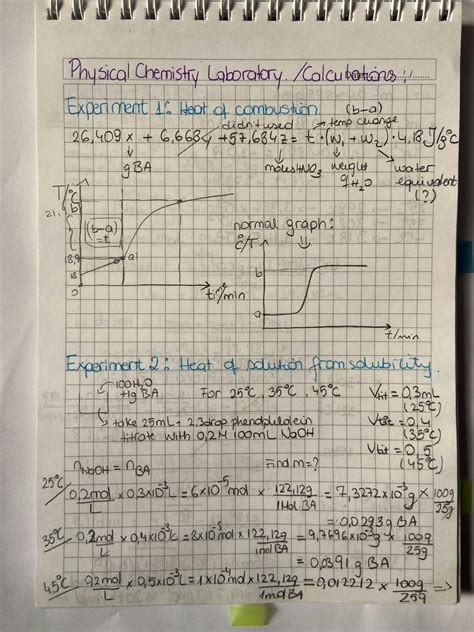 Physical Chemistry Laboratory /Calculations
Experiment 1: Heat of combustion (b-a)
didn't used temp. change
26,409 x + 6,668y + 57,684z = t·(w₁ + w₂)·4,18 J/g°C
gBA
moles HNO₃ weight gH₂O water equivalent (?)
T/°C
b
21,
(b-a) = t
18,9
18
0
a
time/min
normal graph:
°C/T
b
a
t/min
Experiment 2: Heat of solution from solubility.
100 H₂O
+1g BA
For 25°C, 35°C, 45°C
take 25mL + 2,3 drop phenolphtalein
titrate with 0,2M 100mL NaOH
Vtit = 0,3mL (25°C)
Vtit = 0,4 (35°C)
Vtit = 0,5 (45°C)
nNaOH = nBA Find m=?
25°C/ 0,2 mol/L × 0,3×10⁻³L = 6×10⁻⁵mol × 122,12g/1mol BA = 7,3272×10⁻³g × 100g/25g
= 0,0293g BA
35°C/ 0,2 mol/L × 0,4×10⁻³L = 8×10⁻⁵mol × 122,12g/1mol BA = 9,7696×10⁻³g × 100g/25g
= 0,0391g BA
45°C/ 0,2 mol/L × 0,5×10⁻³L = 1×10⁻⁴mol × 122,12g/1mol BA = 0,012212 × 100g/25g =>